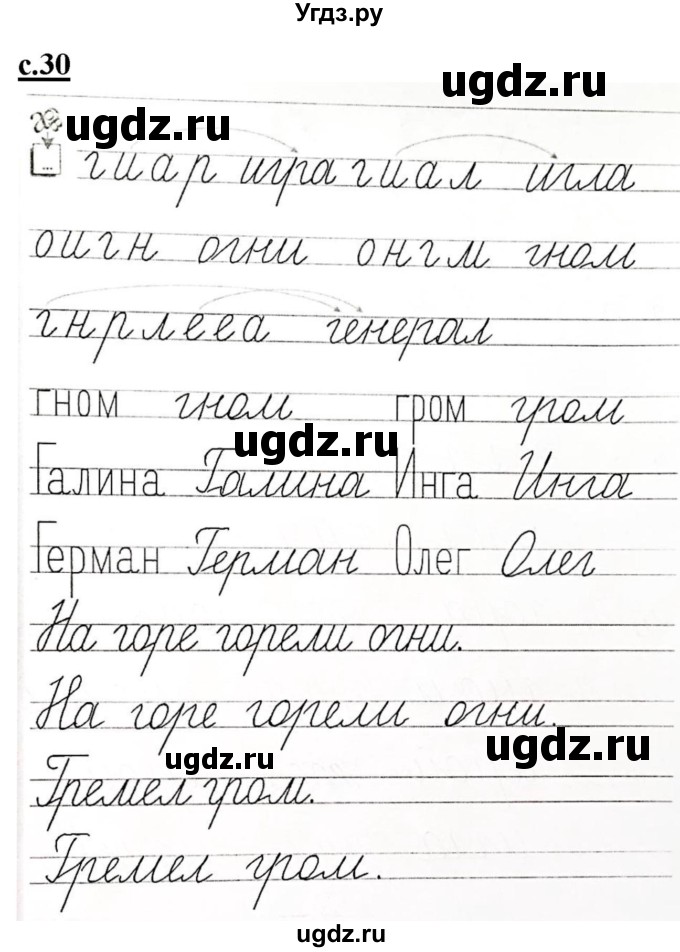 Угдз.ру
с.30
ugdz.ru
ugdz.ru
...
гиар игра гиал игла
оигн огни онгм гном
гнрлееа генерал
гном гном гром гром
ugdz.ru
Галина Галина Инга Инга
Герман Герман Олег Олег
На горе горели огни.
На горе горели огни.
ugdz.ru
ugdz.ru
Гремел гром.
Гремел гром.
ugdz.ru